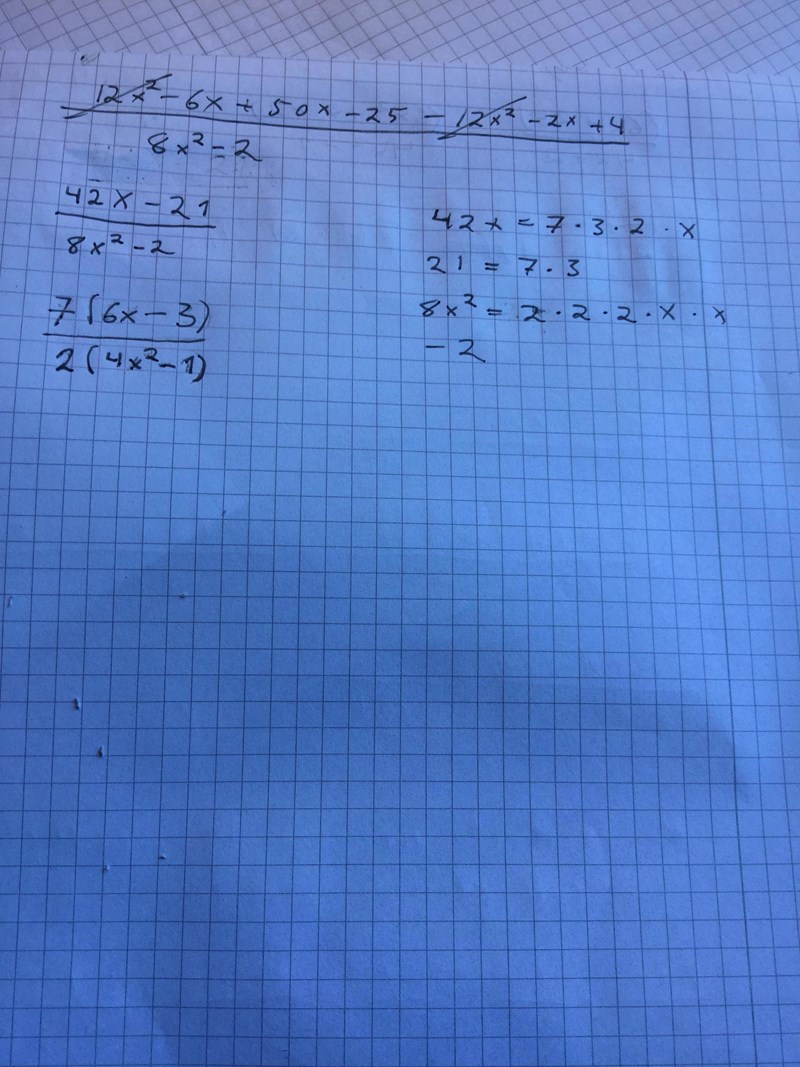 12x² - 6x + 50x - 25 - 12x² - 2x + 4
8x² = 2
42x - 21
8x² - 2
7(6x - 3)
2(4x² - 1)
42x = 7 · 3 · 2 · x
21 = 7 · 3
8x² = 2 · 2 · 2 · x · x
- 2